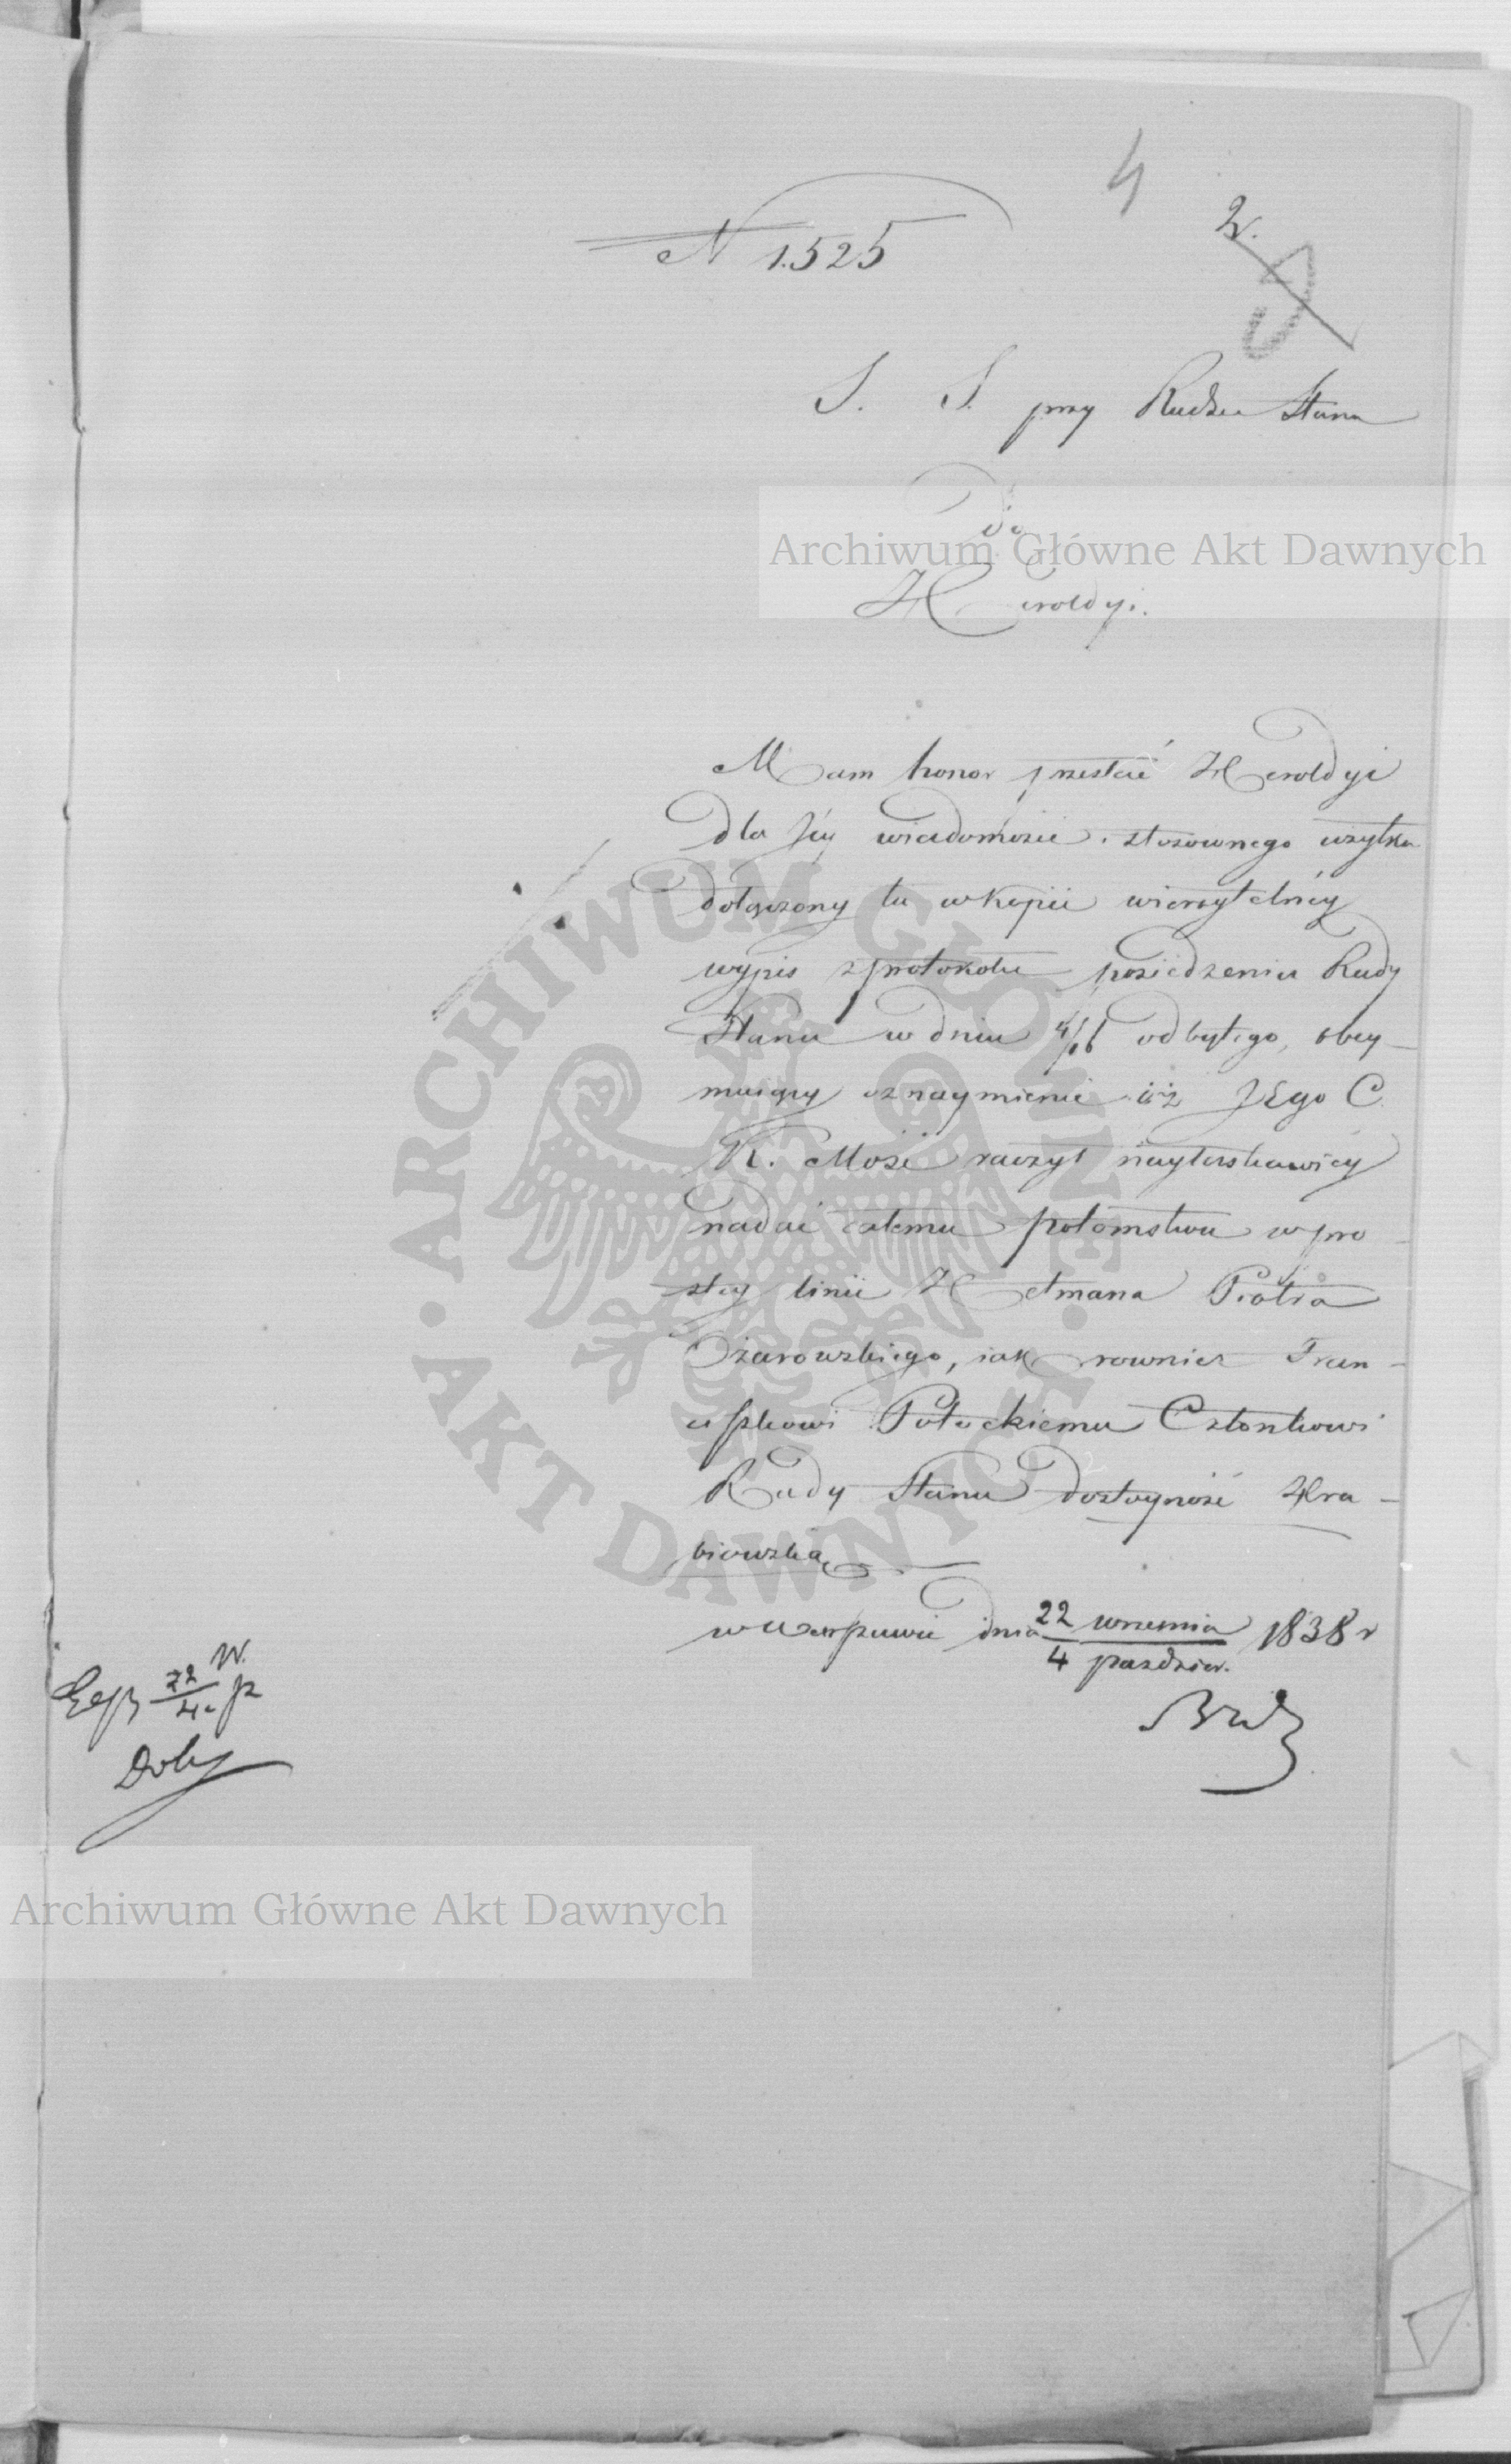 4
2.
5
N 1.525
S. S. przy Radzie Stanu
Do
Heroldyi.
Mam honor przesłać Heroldyi
dla Jéy wiadomości i stosownego użytku
dołączony tu w kopii wierzytelnéy
wypis z protokołu posiedzenia Rady
Stanu w dniu 4/16 odbytego, obey-
muiący oznaymienie iż JEgo C.
K. Mość raczył nayłaskawiéy
nadać całemu potomstwu w pro-
stéy linii Hetmana Piotra
Ożarowskiego, iak rownież Fran-
ciszkowi Potockiemu Członkowi
Rady Stanu dostoyność Hra-
biowską
w Warszawie dnia 22 września / 4 paździer. 1838 r
W.
Exp 22/4 p
Archiwum Główne Akt Dawnych
ARCHIWUM GŁÓWNE AKT DAWNYCH
Archiwum Główne Akt Dawnych